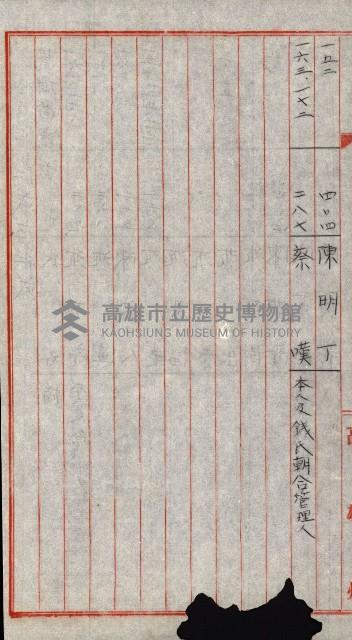 一五二 四〇四 陳明丁
一六三、一七二 二八七 蔡嘆 本人及錢氏朝合管理人
高雄市立歷史博物館
KAOHSIUNG MUSEUM OF HISTORY
高雄州